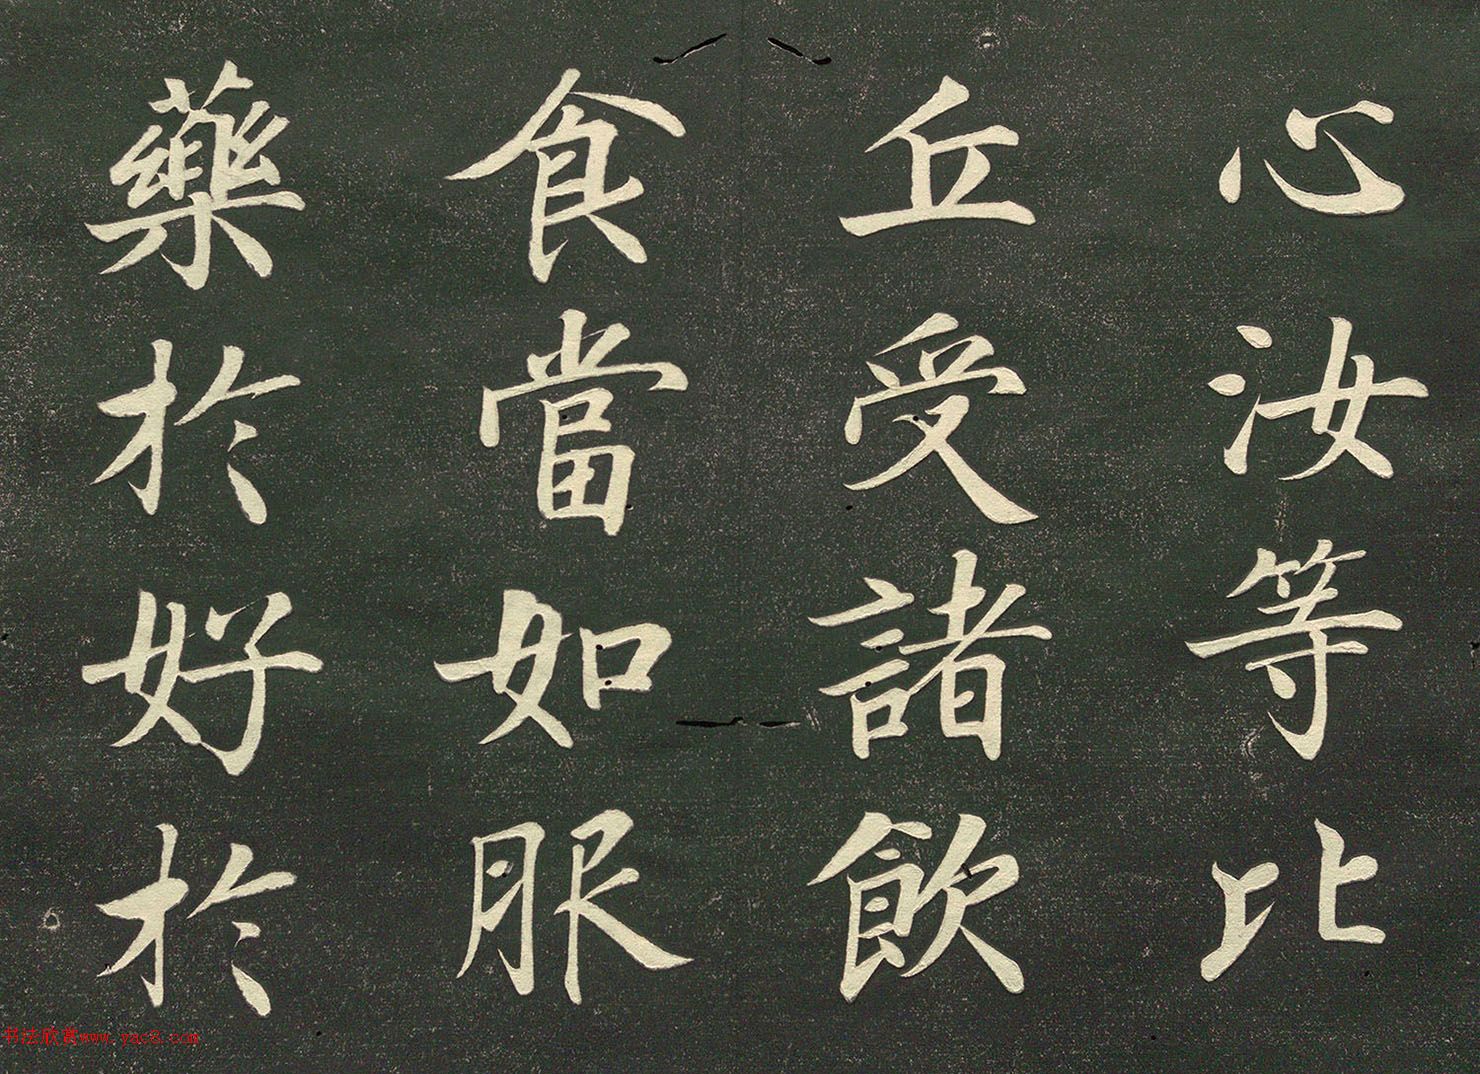 心汝等比
丘受諸飲
食當如服
藥於好於
书法欣赏www.yac8.com